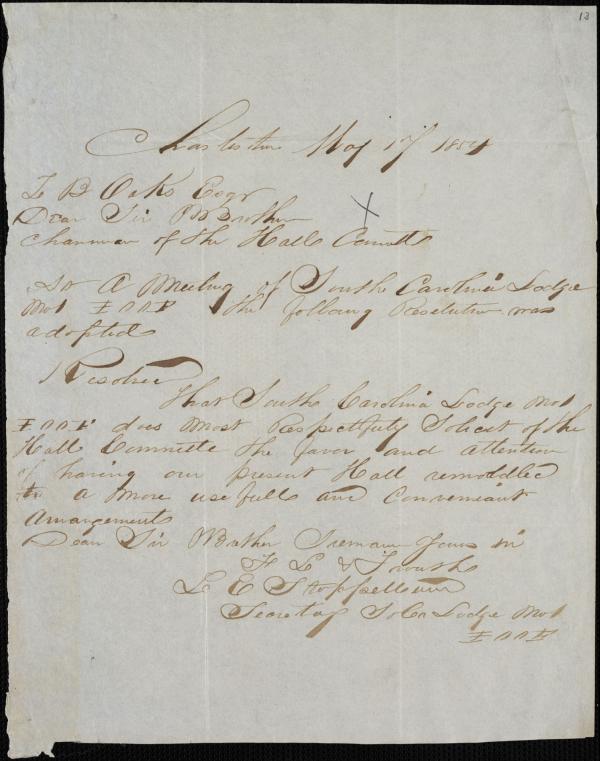 13
Charleston May 17 1854
Z B Oaks Esqr
Dear Sir & Brother
Chairman of the Halls Committe
At A Meeting of South Carolina Lodge
No 1 I O O F the following Resolution was
adopted
Resolved
That South Carolina Lodge No 1
I O O F does most Respectfuly Solicet of the
Hall Committe the favor and attention
of having our present Hall remoddled
to a more usefull and Conveneant
Arrangements
Dear Sir & Brother I remain Yours in
F L & Trouth
L E Stoppelbein
Secretay So Ca Lodge No 1
I O O F